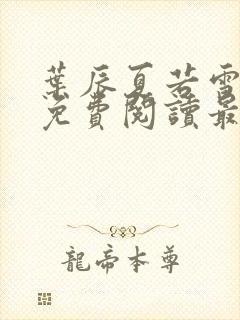 葉辰夏若雪
免費閱讀最
龍帝本尊